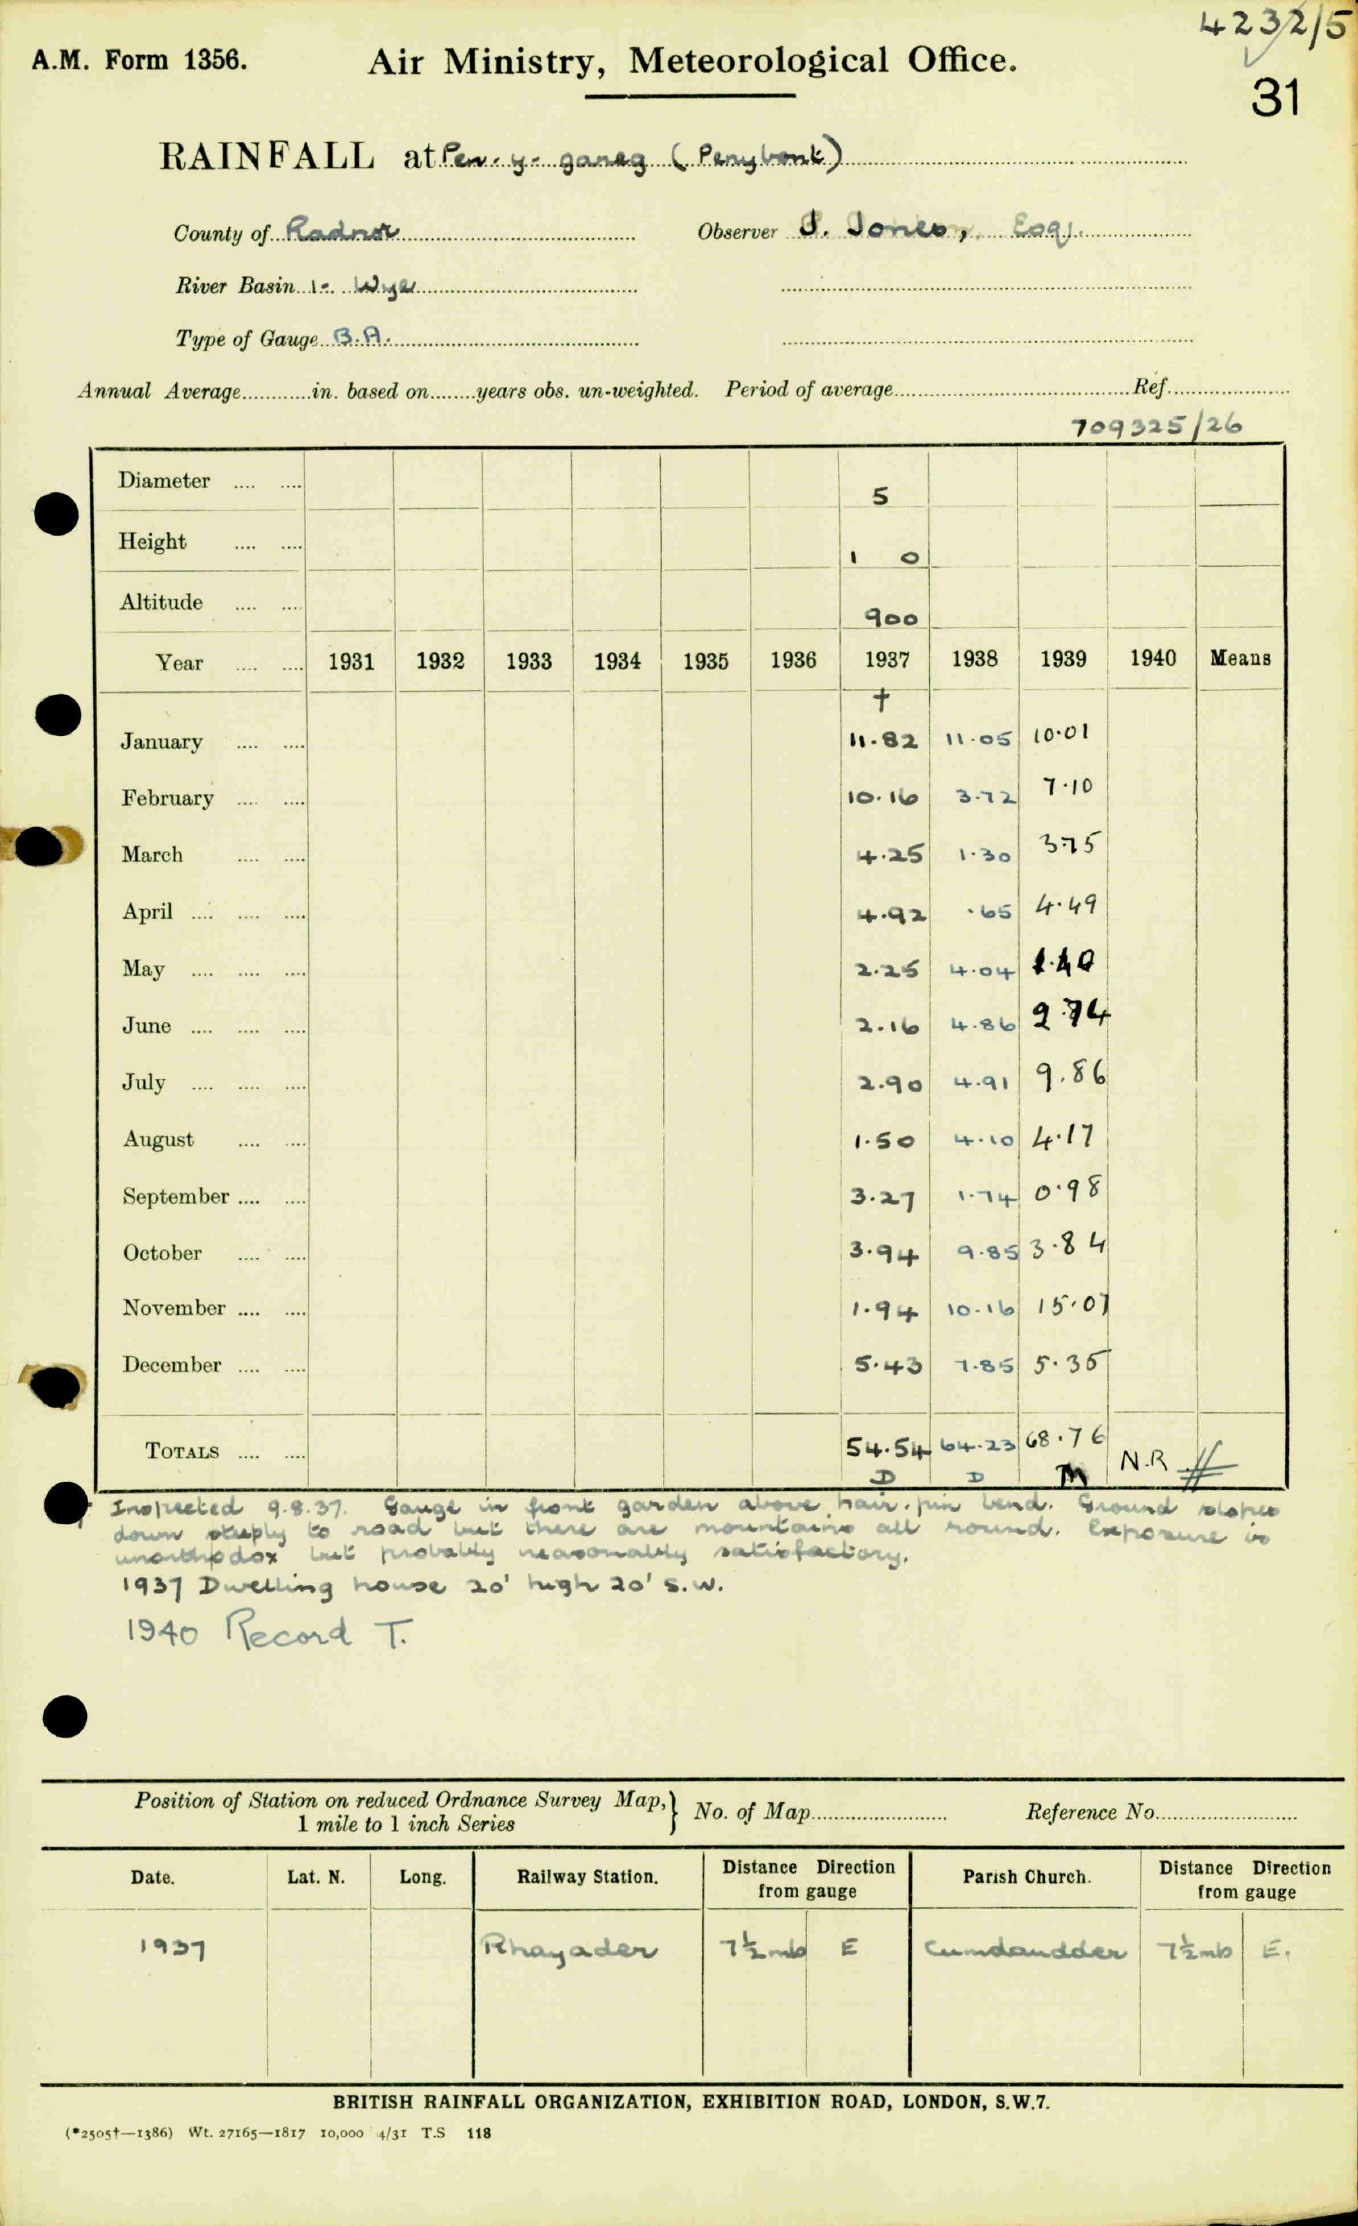 4232/5
A.M. Form 1356. Air Ministry, Meteorological Office.
31
RAINFALL at Pen-y-gareg (Penybont)
County of Radnor Observer J. Jones, Esq.
River Basin 1- Wye
Type of Gauge B.A.
Annual Average in. based on years obs. un-weighted. Period of average Ref.
709325/26
Diameter .... .... 5
Height .... .... 1 0
Altitude .... .... 900
Year .... .... 1931 1932 1933 1934 1935 1936 1937 1938 1939 1940 Means
†
January .... .... 11.82 11.05 10.01
February .... .... 10.16 3.72 7.10
March .... .... 4.25 1.30 3.75
April .... .... .... 4.92 .65 4.49
May .... .... .... 2.25 4.04 1.40
June .... .... .... 2.16 4.86 2.74
July .... .... .... 2.90 4.91 9.86
August .... .... 1.50 4.10 4.17
September .... .... 3.27 1.74 0.98
October .... .... 3.94 9.85 3.84
November .... .... 1.94 10.16 15.07
December .... .... 5.43 7.85 5.35
TOTALS .... .... 54.54 64.23 68.76 N.R
D D M
† Inspected 9.8.37. Gauge in front garden above hair-pin bend. Ground slopes
down steeply to road but there are mountains all round. Exposure is
unorthodox but probably reasonably satisfactory.
1937 Dwelling house 20' high 20' S.W.
1940 Record T.
Position of Station on reduced Ordnance Survey Map, } No. of Map Reference No.
1 mile to 1 inch Series
Date. Lat. N. Long. Railway Station. Distance Direction from gauge Parish Church. Distance Direction from gauge
1937 Rhayader 7½ mls E Cwmdauddwr 7½ mls E.
BRITISH RAINFALL ORGANIZATION, EXHIBITION ROAD, LONDON, S.W.7.
(*2505†—1386) Wt. 27165—1817 10,000 4/31 T.S 118